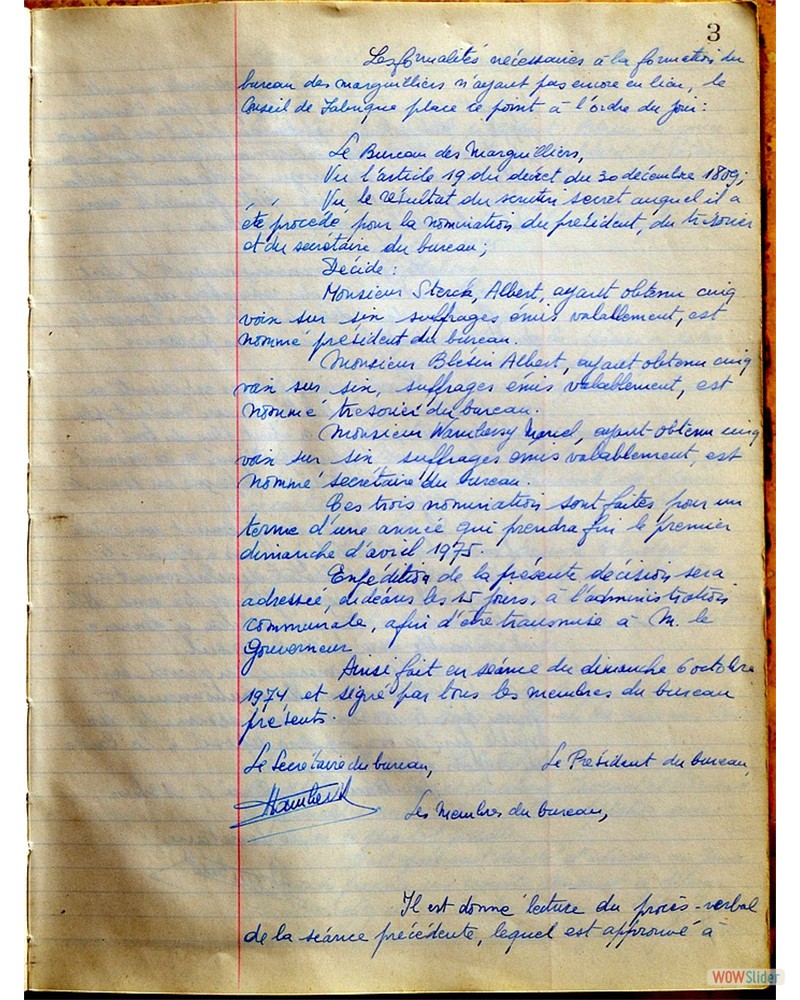 3
Les formalités nécessaires à la formation du
bureau des marguilliers n'ayant pas encore eu lieu, le
Conseil de Fabrique place ce point à l'ordre du jour :
Le Bureau des Marguilliers,
Vu l'article 19 du décret du 30 décembre 1809;
Vu le résultat du scrutin secret auquel il a
été procédé pour la nomination du président, du trésorier
et du secrétaire du bureau;
Décide :
Monsieur Sterck, Albert, ayant obtenu cinq
voix sur six suffrages émis valablement, est
nommé président du bureau.
Monsieur Blésin Albert, ayant obtenu cinq
voix sur six, suffrages émis valablement, est
nommé trésorier du bureau.
Monsieur Wambersy Marcel, ayant obtenu cinq
voix sur six suffrages émis valablement, est
nommé secrétaire du bureau.
Ces trois nomination sont faites pour un
terme d'une année qui prendra fin le premier
dimanche d'avril 1975.
Expédition de la présente décision sera
adressée, dedéans les 15 jours, à l'administration
communale, afin d'être transmise à M. le
Gouverneur
Ainsi fait en séance du dimanche 6 octobre
1974 et signé par tous les membres du bureau
présents.
Le Secrétaire du bureau, Le Président du bureau,
Les Membres du bureau,
Il est donné lecture du procès-verbal
de la séance précédente, lequel est approuvé à
WOWSlider